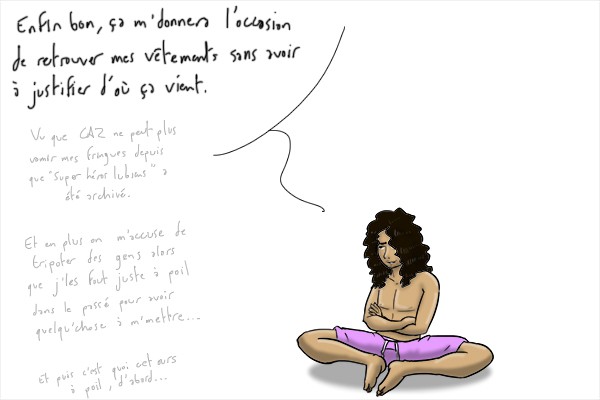 Enfin bon, ça m'donnera l'occasion
de retrouver mes vêtements sans avoir
à justifier d'où ça vient.
Vu que CAZ ne peut plus
vomir mes fringues depuis
que "Super héros lubiens" a
été archivé.
Et en plus on m'accuse de
tripoter des gens alors
que j'les fout juste à poil
dans le passé pour avoir
quelqu'chose à m'mettre...
Et puis c'est quoi cet ours
à poil, d'abord...